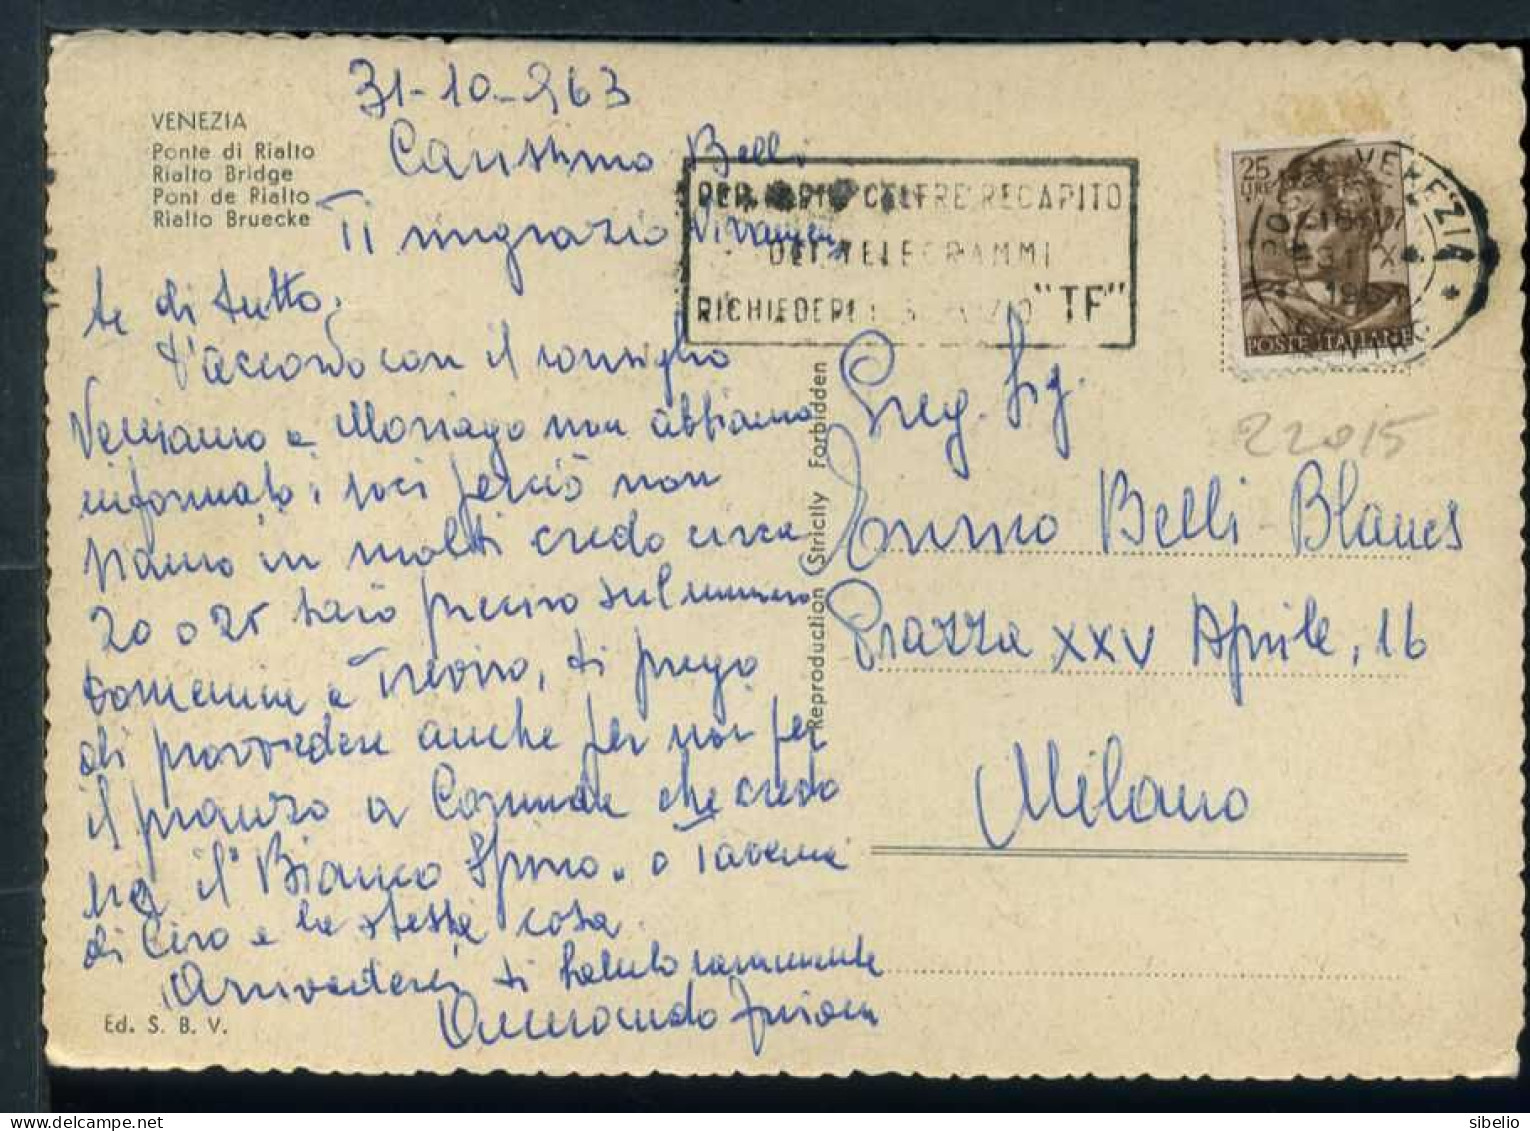 VENEZIA
Ponte di Rialto
Rialto Bridge
Pont de Rialto
Rialto Bruecke
31-10-963
Carissimo Belli
Ti ringrazio vivamen
te di tutto.
D'accordo con il consiglio
Veniamo a Moriago non abbiamo
informato i soci perciò non
siamo in molti credo circa
20 o 25 sarò preciso sul numero
domenica a Treviso, ti prego
di provvedere anche per noi per
il pranzo a che credo
sia il "Bianco Spino" o Taverna
di Ciro è la stessa cosa
Arrivederci ti saluto caramente
Armando
Ed. S. B. V.
PER CELERE RECAPITO
DEI TELEGRAMMI
RICHIEDERE "TF"
25
LIRE
POSTE ITALIANE
VENEZIA
Reproduction Strictly Forbidden
22015
Greg. Sig.
Belli-Blanes
Piazza XXV Aprile, 16
Milano
sibelio